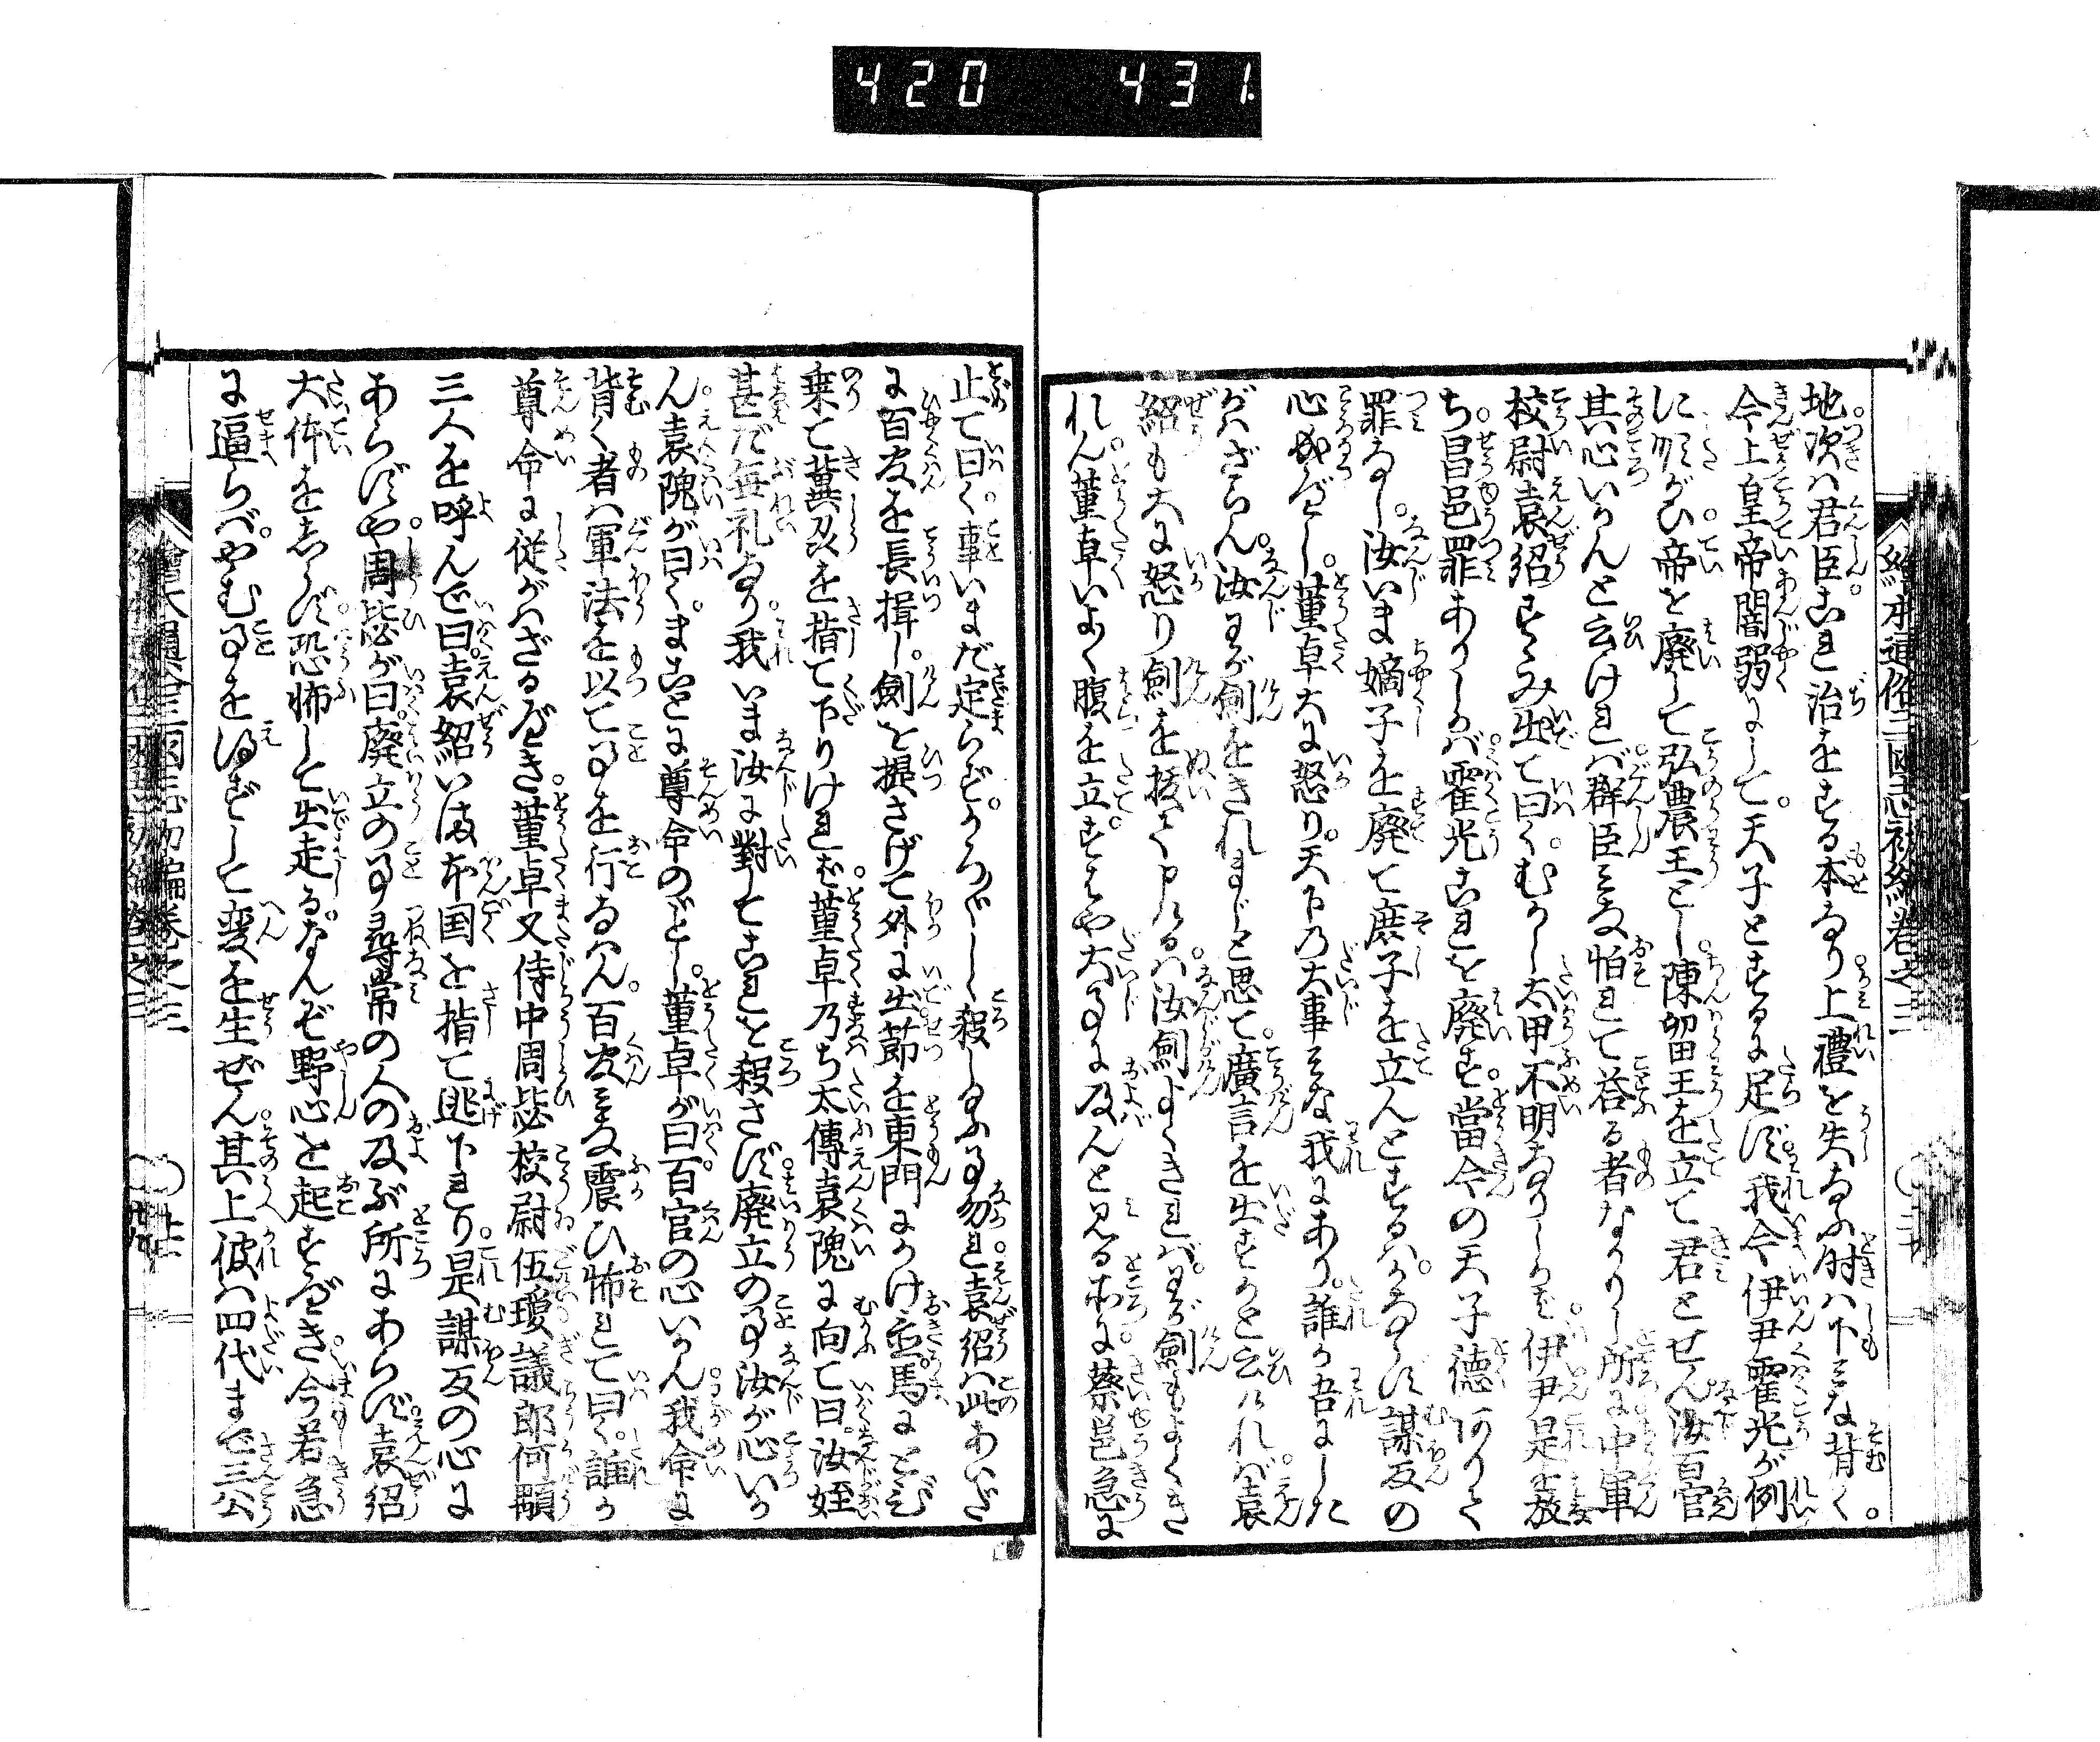 420 431
地次ハ君臣これ治をする本なり上禮を失なふ時ハ下みな背く。
今上皇帝闇弱にして。天子とするに足ず我今伊尹霍光が例
に順がひ。帝を廃して弘農王とし。陳留王を立て君とせん汝百官
其心いかんと云ければ。群臣みな怕れて荅る者なかりし所に中軍
校尉袁紹すゝみ出て曰く。むかし太甲不明なりしかば。伊尹是を放
ち。昌邑罪ありしかば。霍光これを廃す。當今の天子徳ありて
罪なし。汝いま嫡子を廃て庶子を立んとするハ。かならず謀反の
心成べし。董卓大に怒り。天下の大事みな我にあり。誰か吾にした
がハざらん。汝わが劍をきれまじと思て。廣言を出すかと云けれバ。袁
紹も大に怒り劍を抜て申けるハ。汝劍よくきれバ。わが劍もよくき
れん。董卓いよ〳〵腹を立。すはや大事に及んと見る所に。蔡邕急に
止て曰く。事いまだ定らず。かろ〴〵しく殺し給ふ事勿れ。袁紹ハ此あいだ
に百官を長揖し。劍を提さげて外に出。節を東門にかけ置。馬にとび
乗て冀州を指て下りければ。董卓乃ち太傳袁隗に向て曰。汝姪
甚だ無礼なり。我いま汝に對してこれを殺さず。廃立の事汝が心いか
ん。袁隗が曰く。まことに尊命のごとし。董卓が曰。百官の心いかん。我命に
背く者ハ軍法を以て事を行なハん。百官みな震ひ怖れて曰く。誰か
尊命に従がハざるべき。董卓又侍中周毖校尉伍瓊議郎何顒
三人を呼んで曰。袁紹いま本国を指て逃下れり。是謀反の心に
あらずや。周毖が曰。廃立の事尋常の人の及ぶ所にあらず。袁紹
大体をしらず。恐怖して出走る。なんぞ野心を起すべき。今若急
に逼らバ。やむことを得ずして変を生ぜん。其上彼ハ四代まで三公